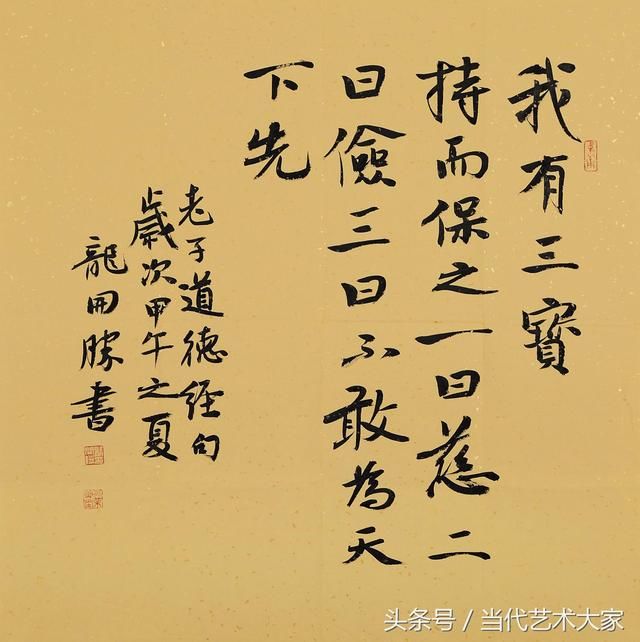 我有三寶
持而保之一曰慈二
曰儉三曰不敢為天
下先
老子道德經句
歲次甲午之夏
龍開勝書
头条号 / 当代艺术大家